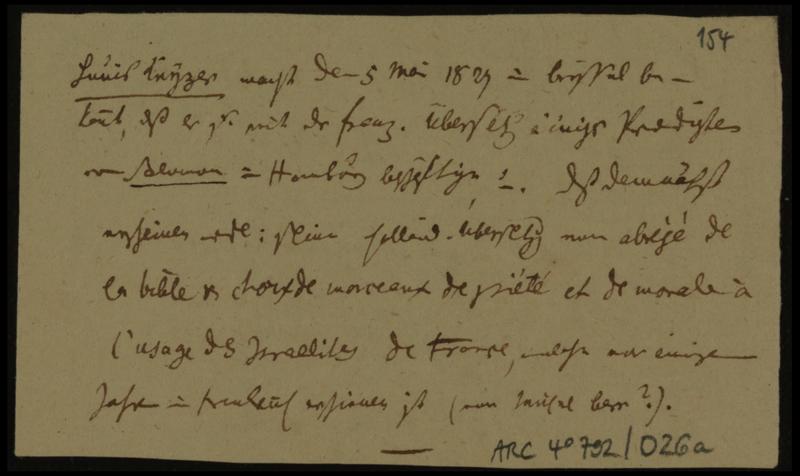 154
Louis Keyzer macht den 5 Mai 1829 in Brüssel be-
kannt, daß er sich mit der franz. Übersetz einiger Predigten
von Salomon in Hamburg beschäftigt. Daß demnächst
erscheinen werde: seine holländ. Übersetzg von abrégé de
la bible & choix de morceaux de piété et de morale à
l'usage des Israelites de France, welche vor einigen
Jahren in Frankreich erschienen ist (von Michel Berr?).
ARC 4º 792/026a